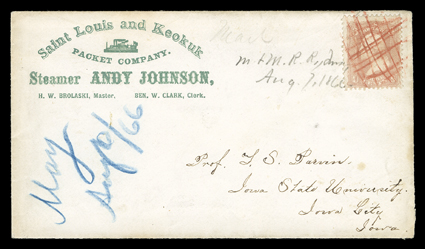 Saint Louis and Keokuk
PACKET COMPANY.
Steamer ANDY JOHNSON,
H. W. BROLASKI, Master. BEN. W. CLARK, Clerk.
Aug. 7,
May
/66
Prof. T. S. Parvin.
Iowa State University.
Iowa City
Iowa.